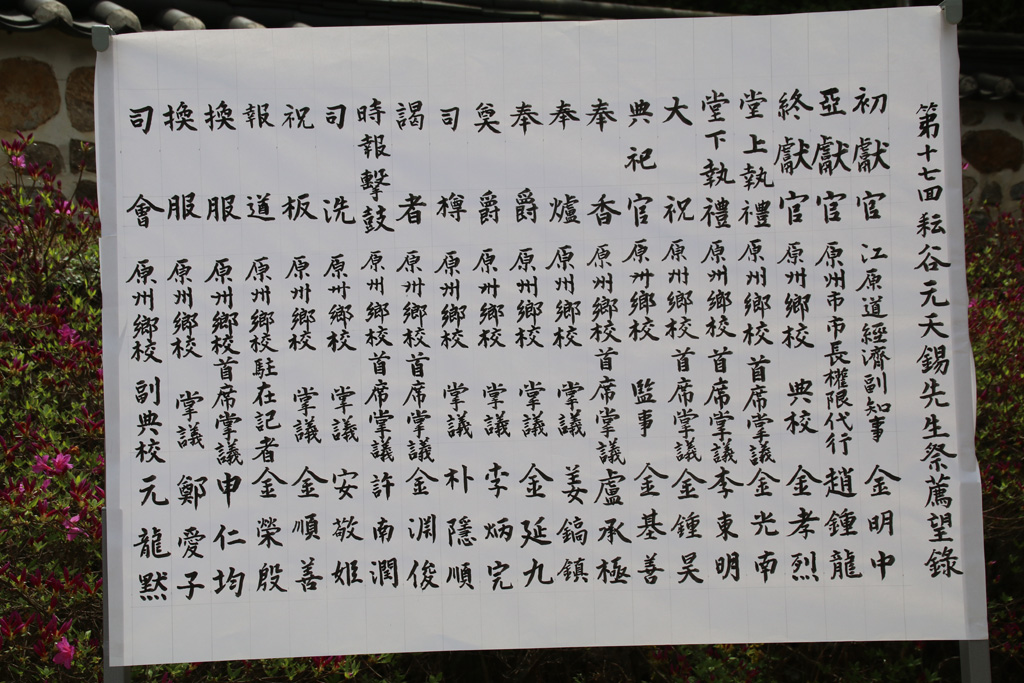 第十七四耘谷元天錫先生祭薦望錄
初獻官 江原道經濟副知事 金明中
亞獻官 原州市市長權限代行 趙鍾龍
終獻官 原州鄉校 典校 金孝烈
堂上執禮 原州鄉校 首席掌議 金光南
堂下執禮 原州鄉校 首席掌議 李東明
大祝 原州鄉校 首席掌議 金鍾昊
典祀官 原州鄉校 監事 金基善
奉香 原州鄉校 首席掌議 盧承極
奉爐 原州鄉校 掌議 姜鎬鎮
奉爵 原州鄉校 掌議 金延九
奠爵 原州鄉校 掌議 李炳完
司樽 原州鄉校 掌議 朴隱順
謁者 原州鄉校 首席掌議 金淵俊
時報擊鼓 原州鄉校 首席掌議 許南潤
司洗 原州鄉校 掌議 安敬姬
祝板 原州鄉校 掌議 金順善
報道 原州鄉校 駐在記者 金榮殷
換服 原州鄉校 首席掌議 申仁均
換服 原州鄉校 掌議 鄭愛子
司會 原州鄉校 副典校 元龍默